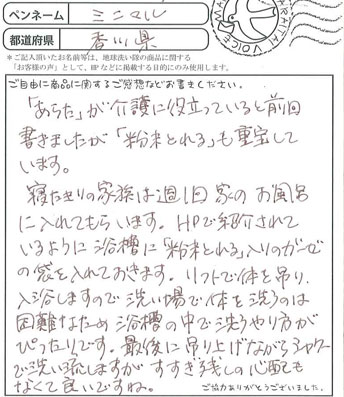 ペンネーム ミニマル
都道府県 香川県
*ご記入頂いたお名前等は、地球洗い隊の商品に関する
「お客様の声」として、HPなどに掲載する目的にのみ使用します。
ご自由に商品に関するご感想などお書きください。
「あらた」が介護に役立っていると前回
書きましたが「粉末とれる」も重宝して
います。
寝たきりの家族は週1回家のお風呂
に入れてもらいます。HPで紹介されて
いるように浴槽に「粉末とれる」入りのガーゼ
の袋を入れておきます。リフトで体を吊り、
入浴しますので洗い場で体を洗うのは
困難なため浴槽の中で洗うやり方が
ぴったりです。最後に吊り上げながらシャワー
で洗い流しますがすすぎ残しの心配も
なくて良いですね。
ご協力ありがとうございました。